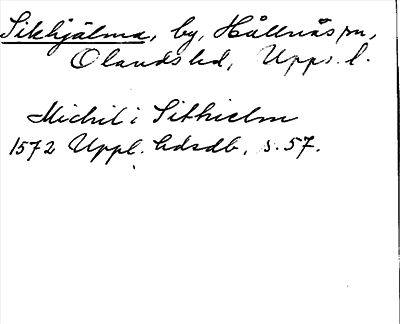 Sikhjälma, by, Hållnäs sn,
Olands hd, Upps. l.
Michil i Sithielm
1572 Uppl. hdsdb, s. 57.